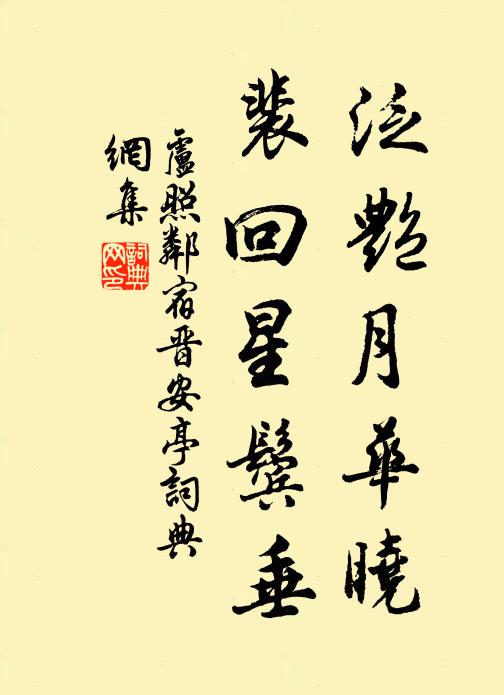 泛艷月華曉
裴回星鬢垂
盧照鄰宿晋安亭詞典
網集
詞典
网印